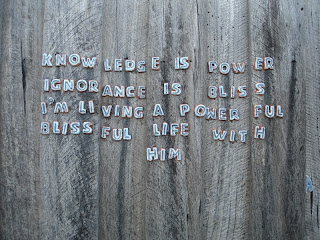 KNOWLEDGE IS POWER
IGNORANCE IS BLISS
I'M LIVING A POWERFUL
BLISSFUL LIFE WITH
HIM